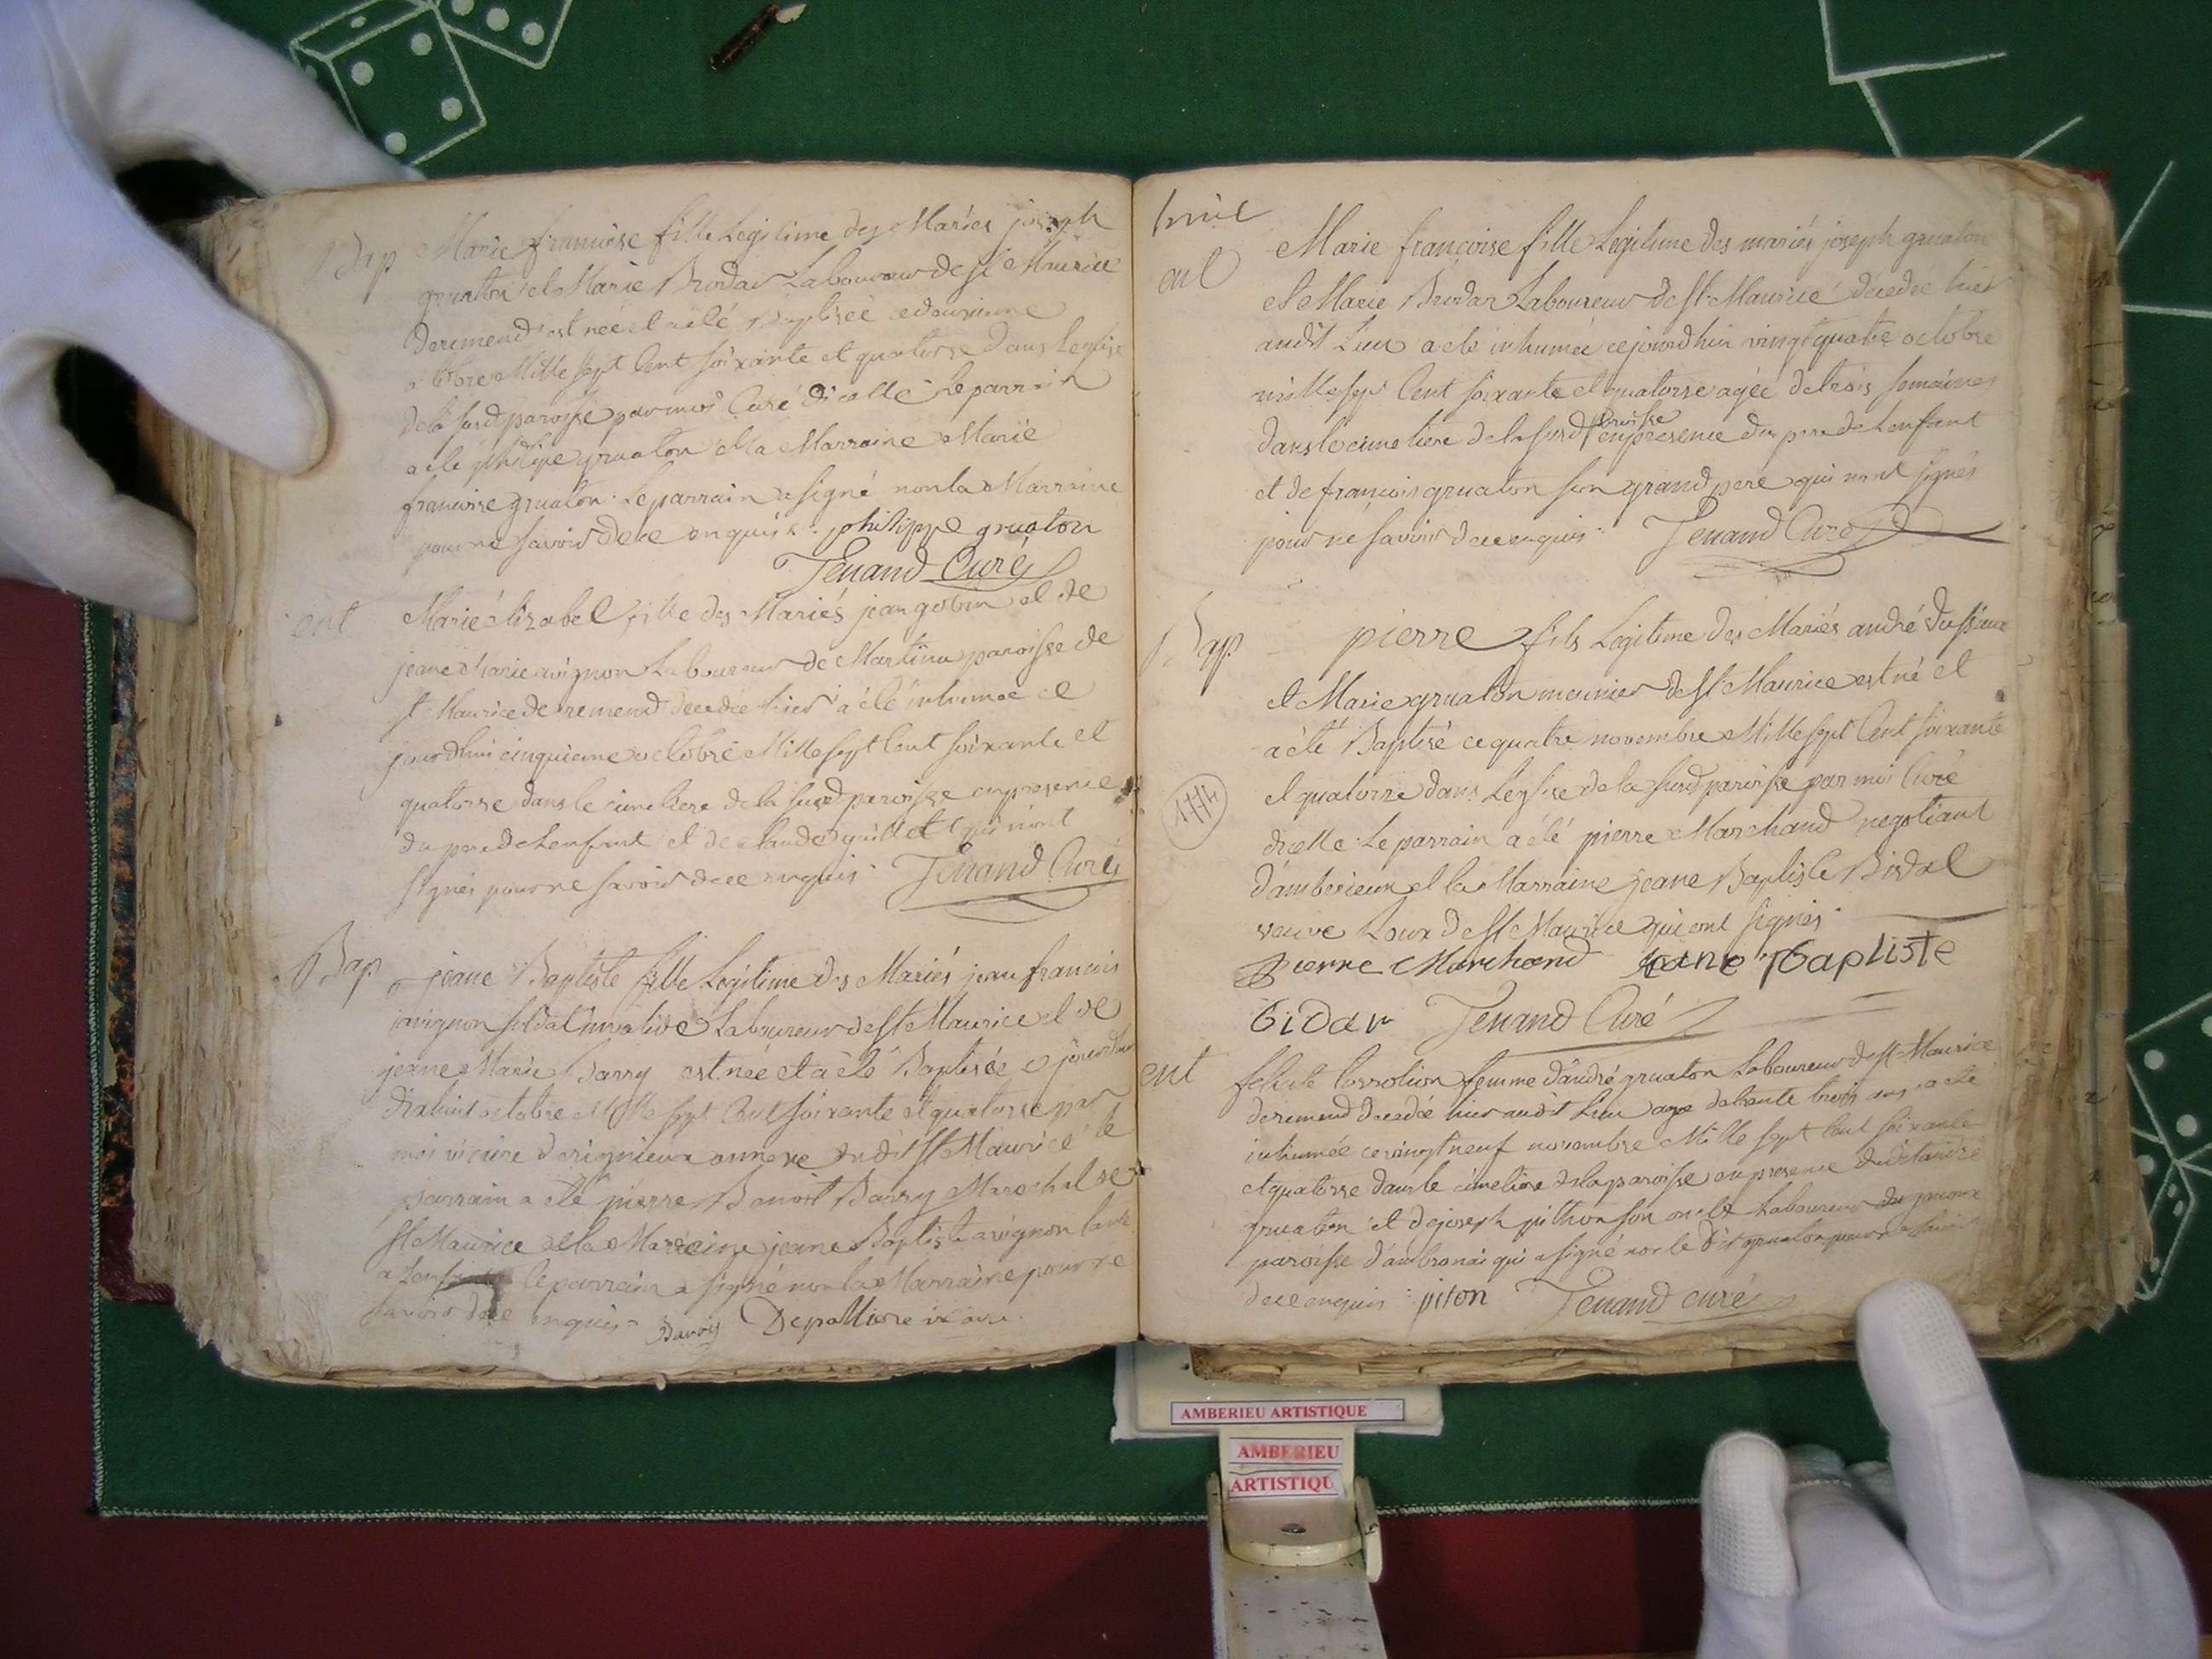 Bap
Marie francoise fille Legitime des Mariés joseph
gruaton et Marie Brodar Laboureur de St Maurice
deremend est née et a été Baptisée ce
octobre Mille sept Cent soixante et quatorse dans Leglise
de la susd paroisse par moi Curé dicelle Le parrain
a été philipe gruaton et la Marraine Marie
francoise gruaton Le parrain a signé non la Marraine
pour ne savoir de ce enquis philippe gruaton
Tenand Curé
ent
Marie élizabet fille des Mariés jean gobin et de
jeane Marie avignon Laboureur de Martinaz paroisse de
st Maurice de remend decedée hier a été inhumée ce
jourdhui cinquieme octobre Mille sept Cent soixante et
quatorse dans le cimetiere de la susd paroisse en presence
du pere de Lenfant et de claude guillet qui n'ont
signés pour ne savoir de ce enquis Tenand Curé
Bap
jeane Baptiste fille Legitime des Mariés jean francois
avignon soldat invalide Laboureur de St Maurice et de
jeane Marie Barry est née et a été Baptisée
dixhuit octobre Mille sept Cent soixante et quatorse par
moi vicaire de rignieux annexe dudit St Maurice le
parrain a été pierre Benoit Barry Marechal de
St Maurice et la Marraine jeane Baptiste avignon tante
a Lenfant le parrain a signé non la Marraine pour ne
savoir de ce enquis Depalliere vicaire
ent
Marie francoise fille Legitime des mariés joseph gruaton
et Marie Brodar Laboureur de St Maurice decedée hier
audit Lieu a été inhumée cejourdhui vingt quatre octobre
mille sept Cent soixante et quatorse agée de trois semaines
dans le cimetiere de la susd paroisse en presence du pere de Lenfant
et de francois gruaton son grand pere qui n'ont signés
pour ne savoir de ce enquis Tenand Curé
Bap
pierre fils Legitime des Mariés andré
et Marie gruaton meunier de St Maurice est né et
a été Baptisé ce quatre novembre Mille sept Cent soixante
et quatorse dans Leglise de la susd paroisse par moi Curé
1774
dicelle Le parrain a été pierre Marchand negotiant
d'amberieux et la Marraine jeane Baptiste Bidal
veuve Loux de St Maurice qui ont signés
pierre Marchand jeane Baptiste
Bidar Tenand Curé
ent
femme d'andré gruaton Laboureur de St Maurice
deremend decedée hier audit Lieu agée de trente huit ans a été
inhumée ce vingt neuf novembre Mille sept Cent soixante
et quatorse dans le cimetiere de la paroisse en presence dudit andré
gruaton et de joseph pithon son oncle Laboureur
paroisse d'ambronai qui a signé non le dit gruaton pour ne savoir
de ce enquis piton Tenand curé
AMBERIEU ARTISTIQUE
AMBERIEU
ARTISTIQU